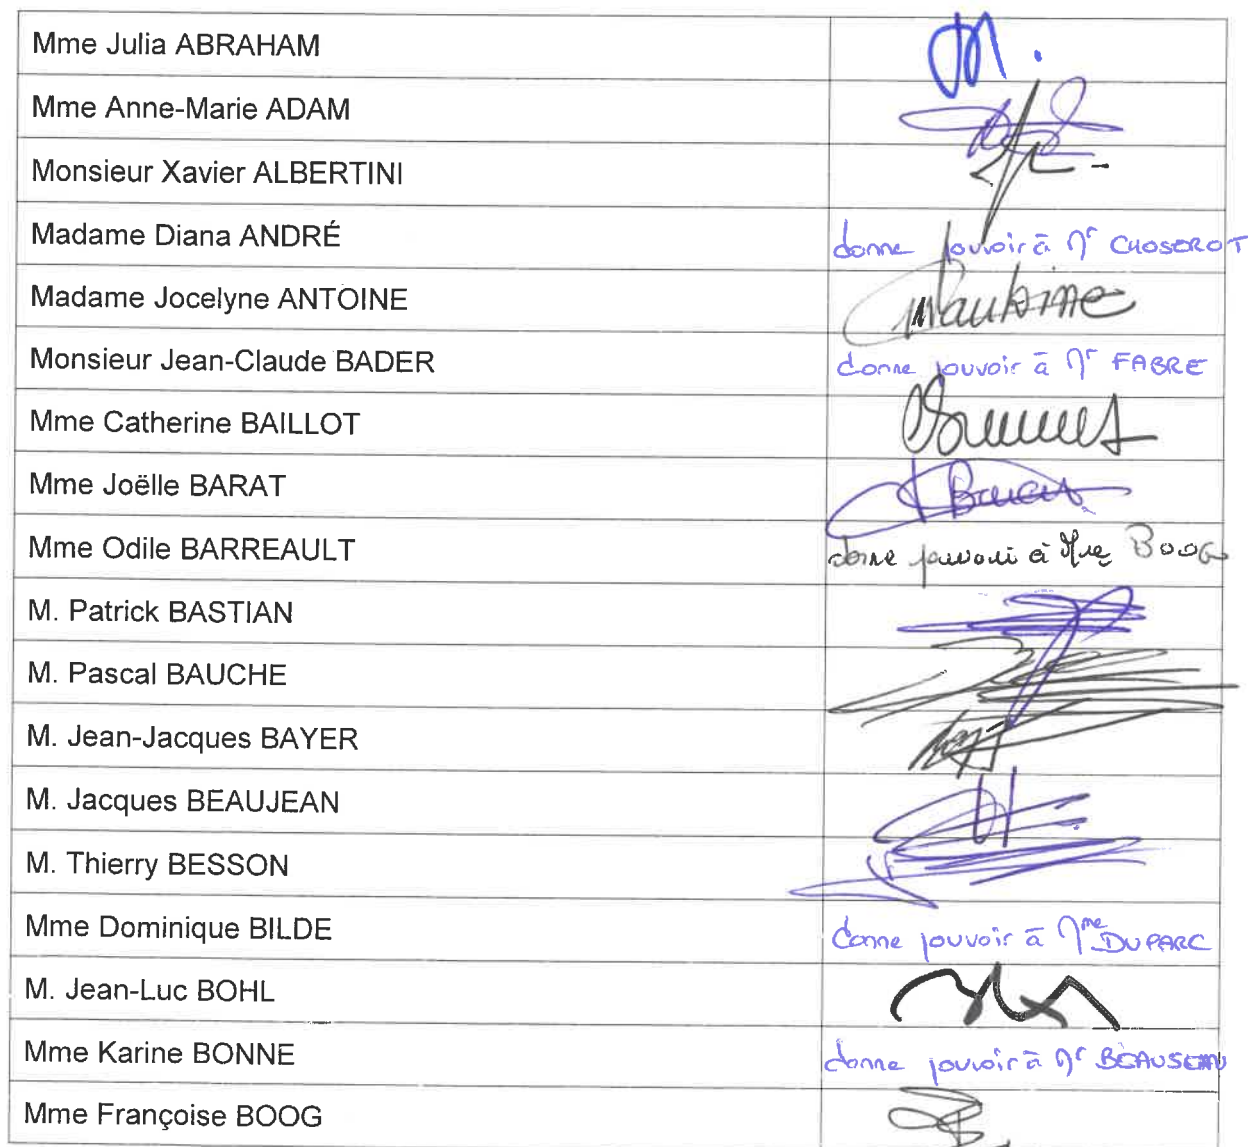 Mme Julia ABRAHAM
Mme Anne-Marie ADAM
Monsieur Xavier ALBERTINI
Madame Diana ANDRÉ donne pouvoir à Mr CHOSEROT
Madame Jocelyne ANTOINE
Monsieur Jean-Claude BADER donne pouvoir à Mr FABRE
Mme Catherine BAILLOT
Mme Joëlle BARAT
Mme Odile BARREAULT donne pouvoir à Mme BOOG
M. Patrick BASTIAN
M. Pascal BAUCHE
M. Jean-Jacques BAYER
M. Jacques BEAUJEAN
M. Thierry BESSON
Mme Dominique BILDE donne pouvoir à Mme DUPARC
M. Jean-Luc BOHL
Mme Karine BONNE donne pouvoir à Mr
Mme Françoise BOOG